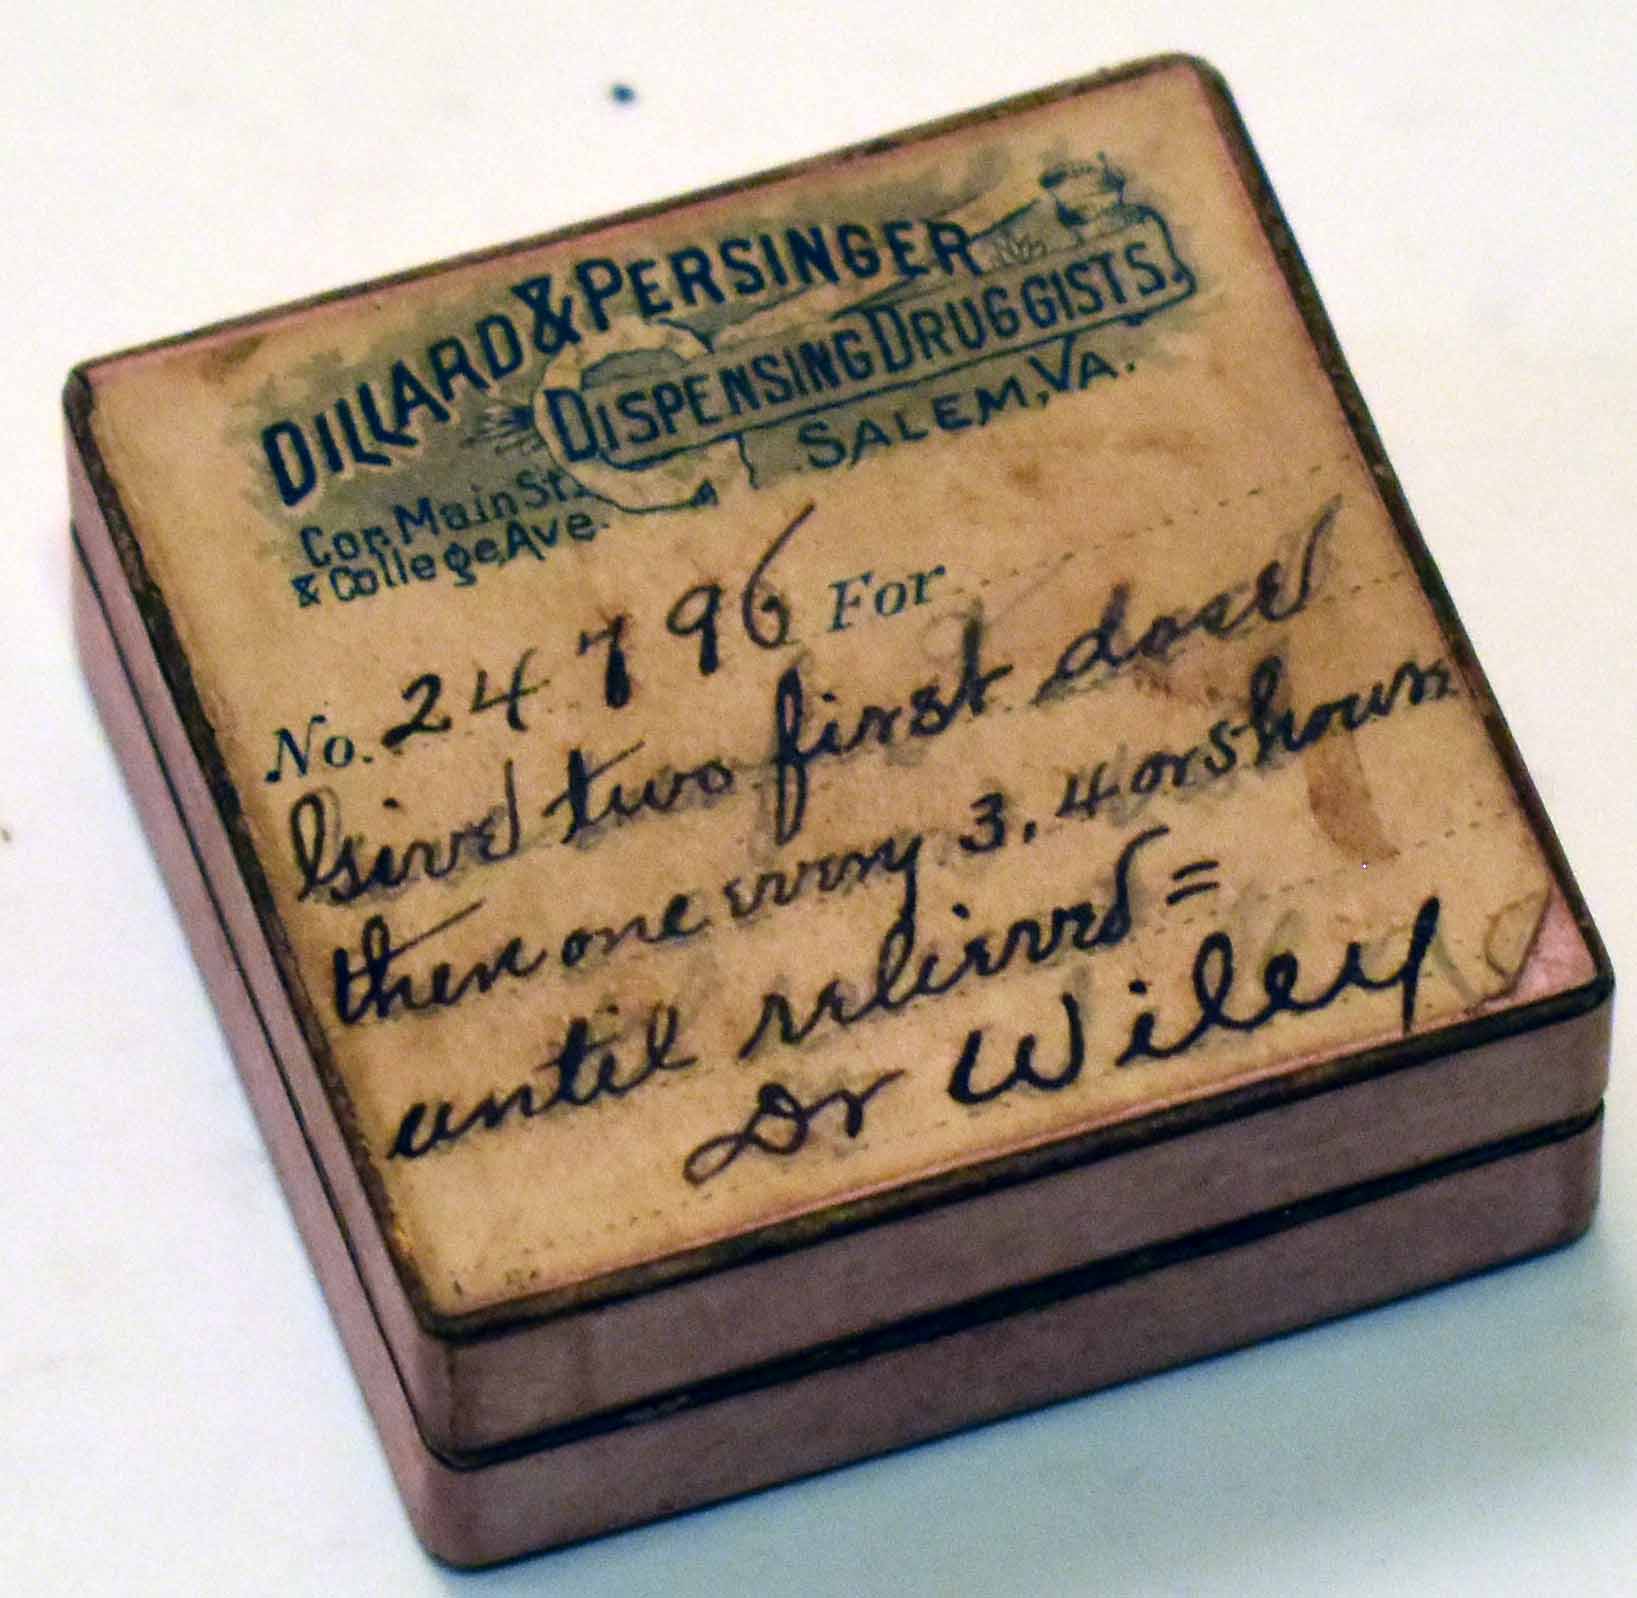 DILLARD & PERSINGER
DISPENSING DRUGGISTS.
SALEM, VA.
Cor. Main St.
& College Ave.
No. 24796 For
Give two first dose
then one every 3, 4 or 5 hours
until relieved =
Dr Wiley